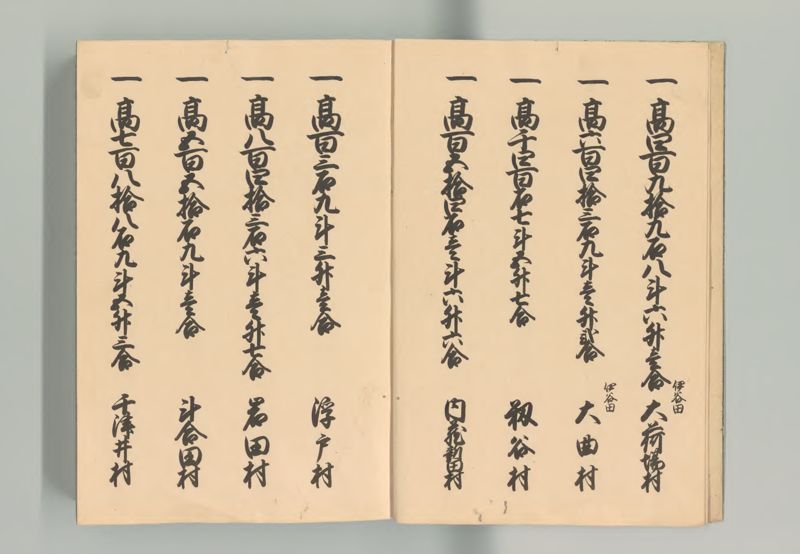 一 高四百九拾九石八斗六升壱合 伊谷田 大荷場村
一 高六百四拾三石九斗壱升弐合 伊谷田 大曲村
一 高千四百石七斗五升七合 靱谷村
一 高百五拾四石壱斗六升六合 内蔵新田村
一 高百三石九斗三升壱合 浮戸村
一 高八百四拾三石六斗壱升七合 岩田村
一 高五百五拾石九斗壱合 斗合田村
一 高七百八拾八石九斗五升三合 千津井村